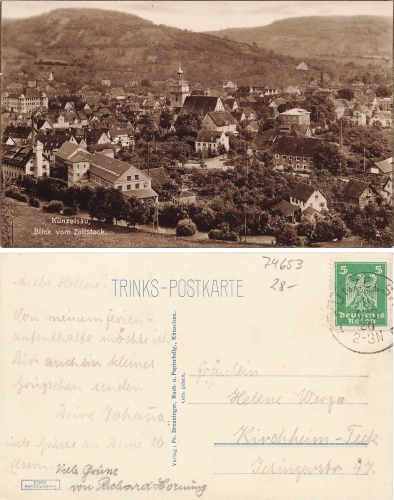 Künzelsau,
Blick vom Zollstock.
74653
28-
TRINKS-POSTKARTE
5 5
Deutsches
Reich
2-3N
Liebe Helene!
Von meinem Ferien-
aufenthalte möchte ich
Dir auch ein kleines
Grüßchen senden
Deine Johanna.
Viele Grüße an Deine lb.
Eltern.
Viele Grüsse
von Richard Hornung
Verlag: Fr. Brenninger, Buch- u. Papierhdlg., Künzelsau.
Ges. gesch.
Fräulein
Helene
Kirchheim-Teck
Jesingerstr. 47.